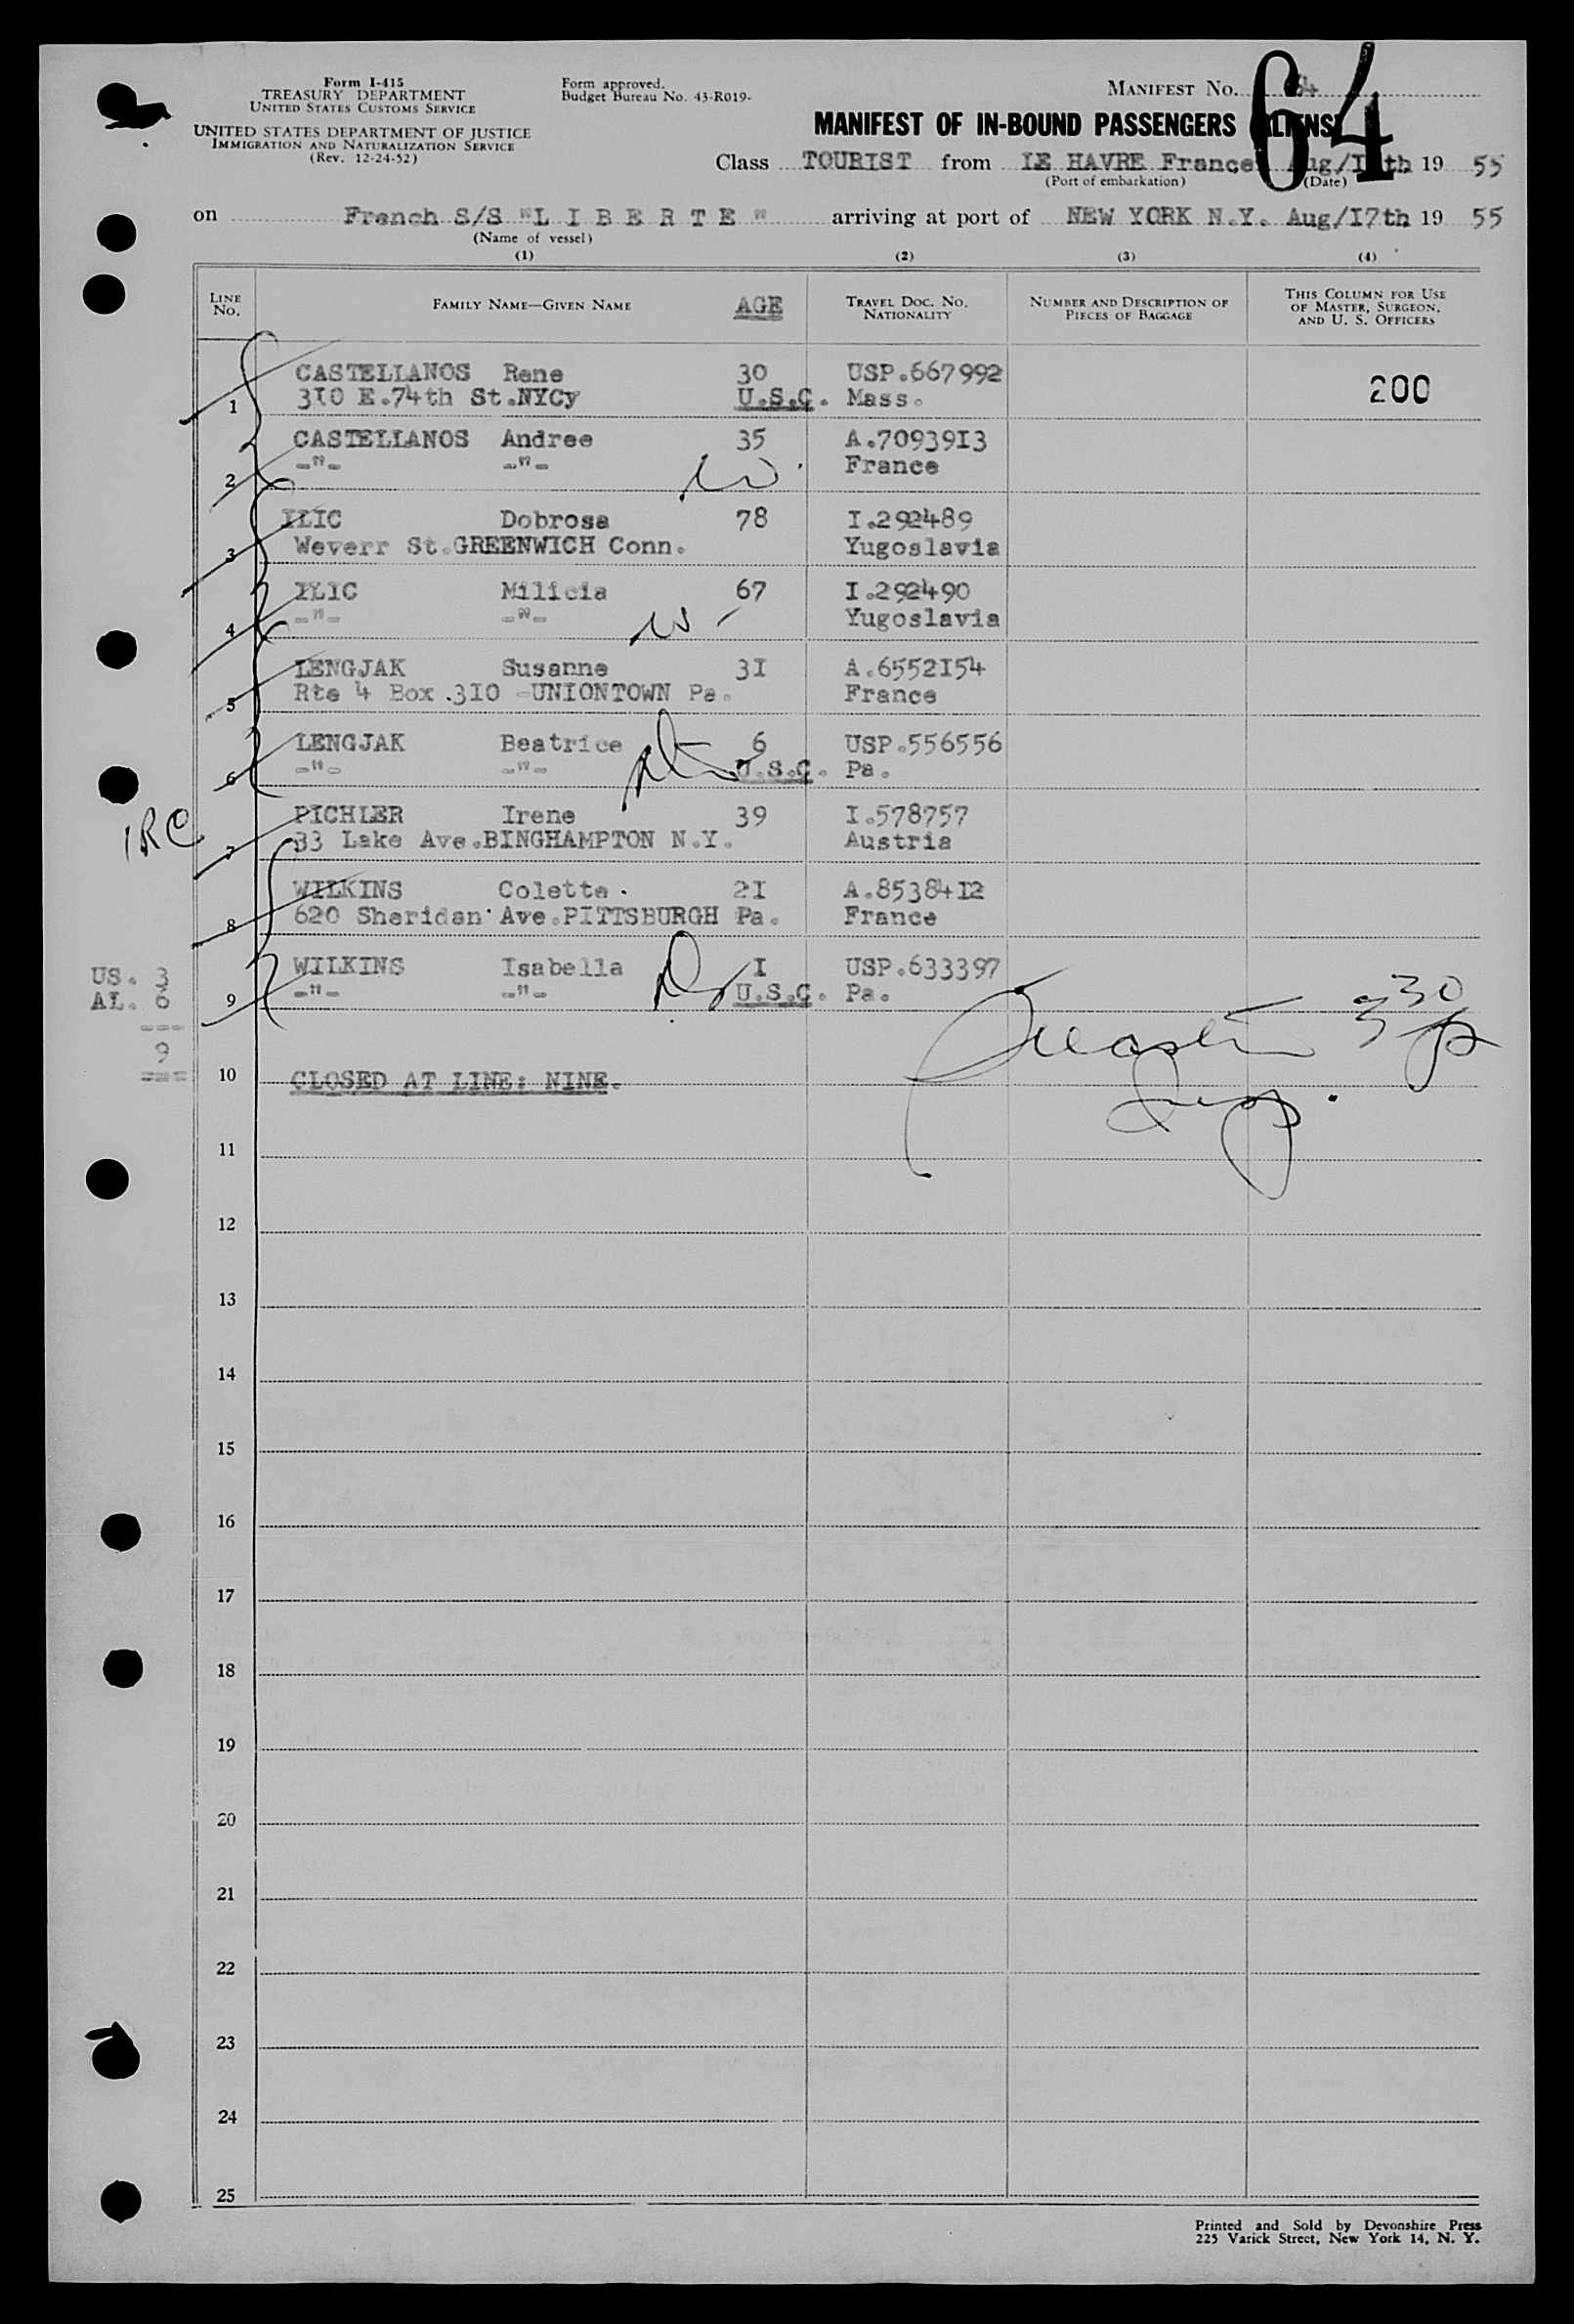 Form I-415
TREASURY DEPARTMENT
UNITED STATES CUSTOMS SERVICE
UNITED STATES DEPARTMENT OF JUSTICE
IMMIGRATION AND NATURALIZATION SERVICE
(Rev. 12-24-52)
Form approved.
Budget Bureau No. 43-R019-
MANIFEST No. 64
64
MANIFEST OF IN-BOUND PASSENGERS
Class TOURIST from LE HAVRE France 19 55
(Port of embarkation) (Date)
on French S/S "L I B E R T E" arriving at port of NEW YORK N.Y. Aug/I7th 19 55
(Name of vessel)
(1) (2) (3) (4)
LINE No. FAMILY NAME—GIVEN NAME AGE TRAVEL DOC. NO. NATIONALITY NUMBER AND DESCRIPTION OF PIECES OF BAGGAGE THIS COLUMN FOR USE OF MASTER, SURGEON, AND U. S. OFFICERS
CASTELLANOS Rene 30 USP.667992
1 3I0 E.74th St.NYCy U.S.C. Mass. 200
CASTELLANOS Andree 35 A.70939I3
2 -"- -"- France
ILIC Dobrosa 78 I.292489
3 Weverr St.GREENWICH Conn. Yugoslavia
ILIC Milicia 67 I.292490
4 -"- -"- Yugoslavia
LENGJAK Susanne 3I A.6552I54
5 Rte 4 Box .3I0 -UNIONTOWN Pa. France
LENGJAK Beatrice 6 USP.556556
6 -"- -"- U.S.C. Pa.
IRC
PICHLER Irene 39 I.578757
7 33 Lake Ave.BINGHAMPTON N.Y. Austria
WILKINS Colette. 2I A.85384I2
8 620 Sheridan Ave.PITTSBURGH Pa. France
WILKINS Isabella I USP.633397
9 -"- -"- U.S.C. Pa.
US. 3
AL. 6
---
9
===
330
10 CLOSED AT LINE: NINE.
Insp.
11
12
13
14
15
16
17
18
19
20
21
22
23
24
25
Printed and Sold by Devonshire Press
225 Varick Street, New York 14, N. Y.